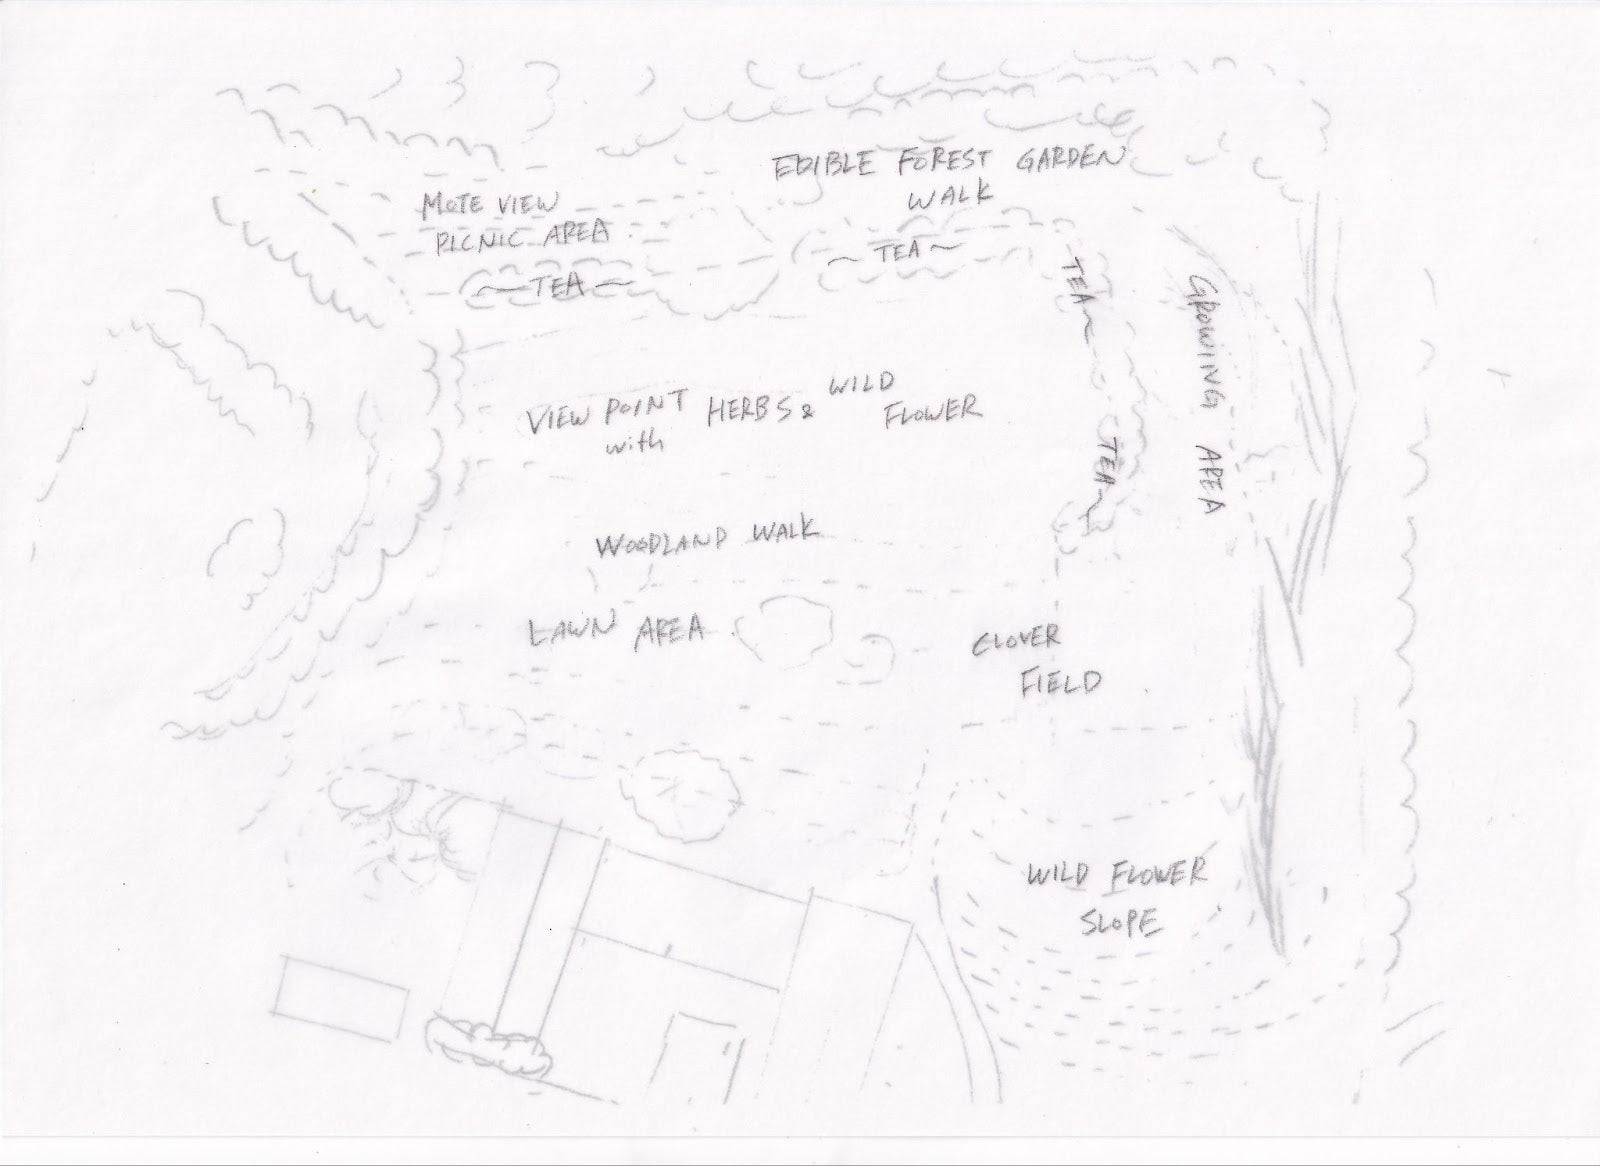 EDIBLE FOREST GARDEN
WALK
MOTE VIEW
PICNIC AREA
~TEA~
~TEA~
TEA~
GROWING AREA
VIEW POINT HERBS & WILD
with FLOWER
TEA~
WOODLAND WALK
LAWN AREA
CLOVER
FIELD
WILD FLOWER
SLOPE